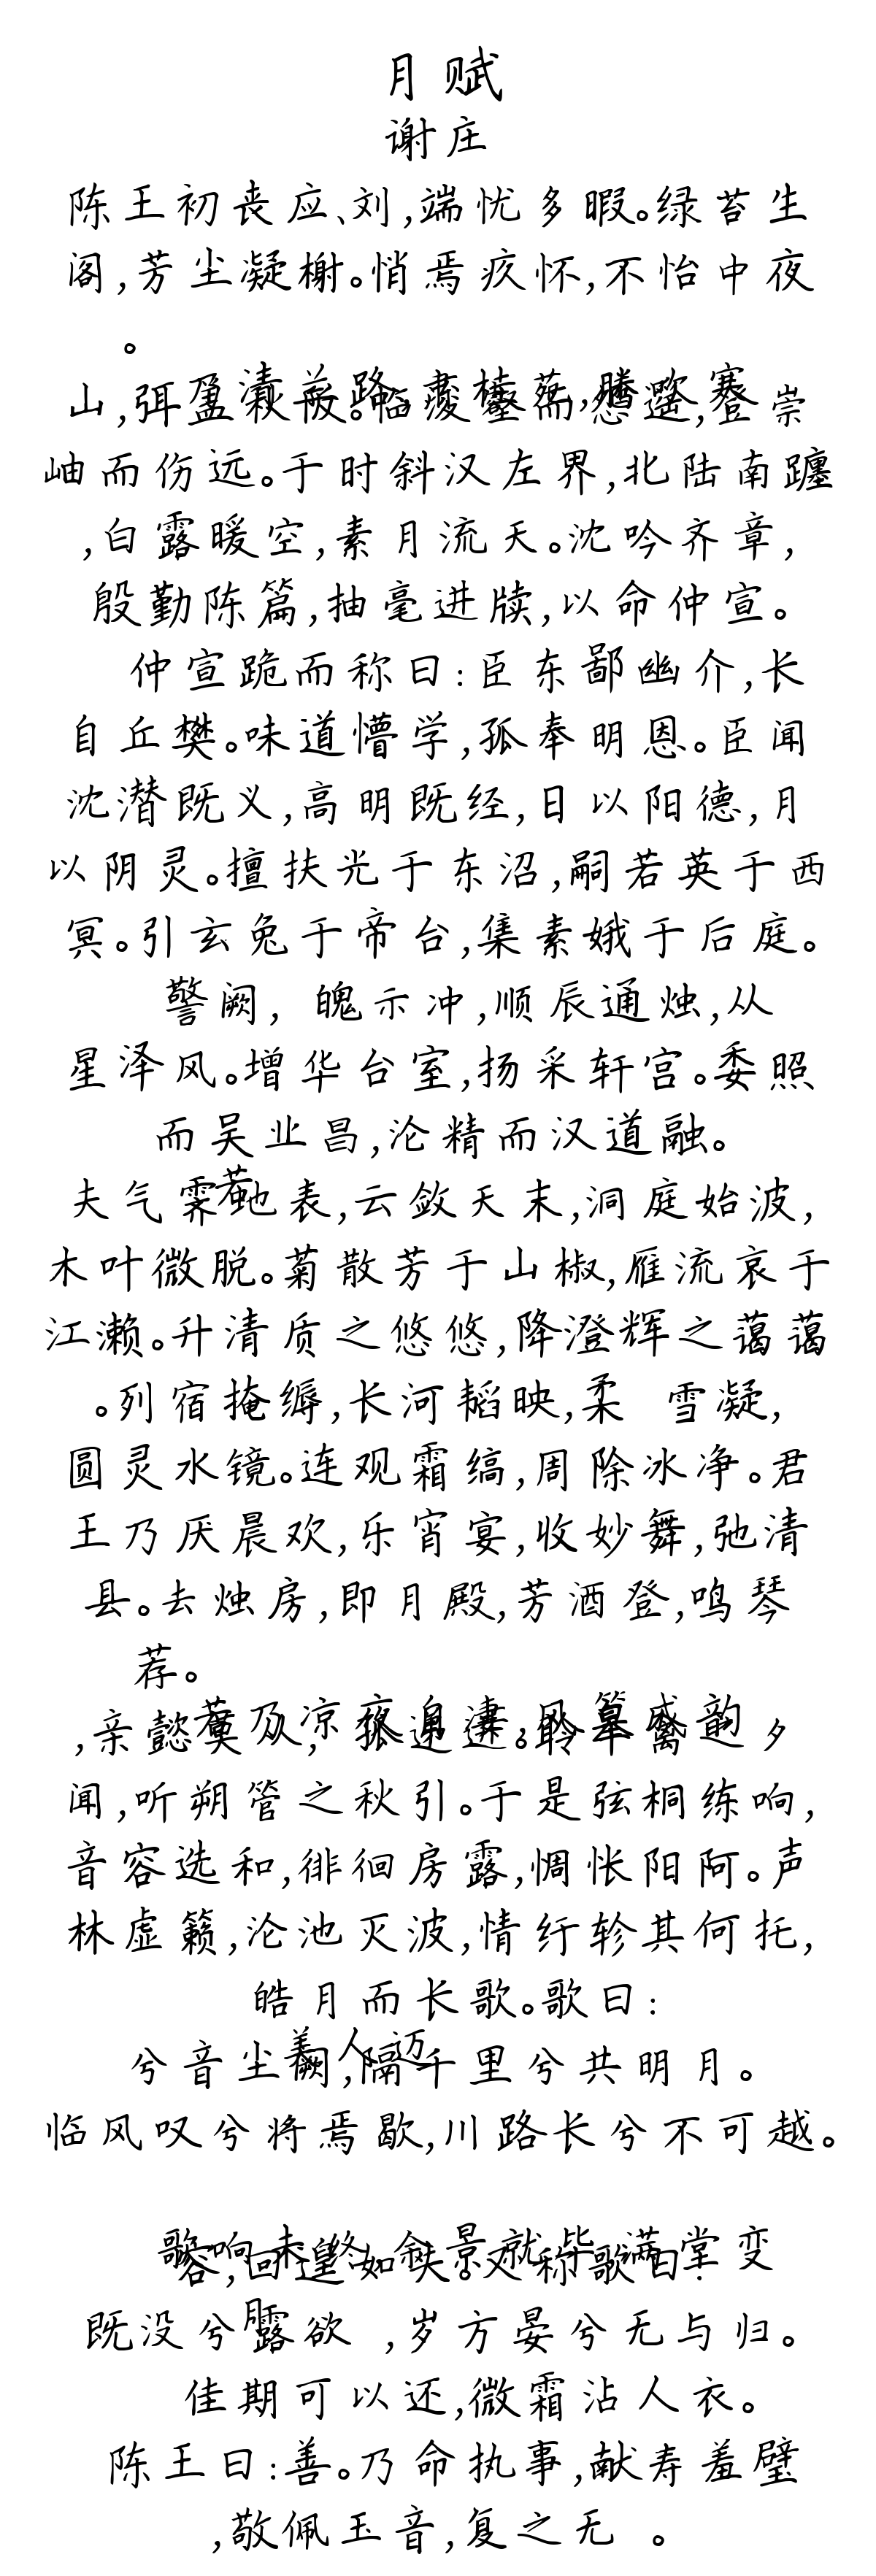 月赋
谢庄
陈王初丧应、刘,端忧多暇。绿苔生
阁,芳尘凝榭。悄焉疚怀,不怡中夜
。
清 路,肃桂苑,腾 寒
山,弭盖秋阪。临浚壑而怨遥,登崇
岫而伤远。于时斜汉左界,北陆南躔
,白露暖空,素月流天。沈吟齐章,
殷勤陈篇,抽毫进牍,以命仲宣。
仲宣跪而称曰:臣东鄙幽介,长
自丘樊。味道懵学,孤奉明恩。臣闻
沈潜既义,高明既经,日以阳德,月
以阴灵。擅扶光于东沼,嗣若英于西
冥。引玄兔于帝台,集素娥于后庭。
警阙, 魄示冲,顺辰通烛,从
星泽风。增华台室,扬采轩宫。委照
而吴业昌,沦精而汉道融。
若
夫气霁地表,云敛天末,洞庭始波,
木叶微脱。菊散芳于山椒,雁流哀于
江濑。升清质之悠悠,降澄辉之蔼蔼
。列宿掩缛,长河韬映,柔 雪凝,
圆灵水镜。连观霜缟,周除冰净。君
王乃厌晨欢,乐宵宴,收妙舞,弛清
县。去烛房,即月殿,芳酒登,鸣琴
荐。
若乃凉夜自凄,风篁成韵
,亲懿莫从, 孤递进。聆皋禽 夕
闻,听朔管之秋引。于是弦桐练响,
音容选和,徘徊房露,惆怅阳阿。声
林虚籁,沦池灭波,情纡轸其何托,
皓月而长歌。歌曰:
美人迈
兮音尘阙,隔千里兮共明月。
临风叹兮将焉歇,川路长兮不可越。
歌响未终,余景就毕,满堂变
容,回遑如失。又称歌曰:
月
既没兮露欲 ,岁方晏兮无与归。
佳期可以还,微霜沾人衣。
陈王曰:善。乃命执事,献寿羞璧
,敬佩玉音,复之无 。